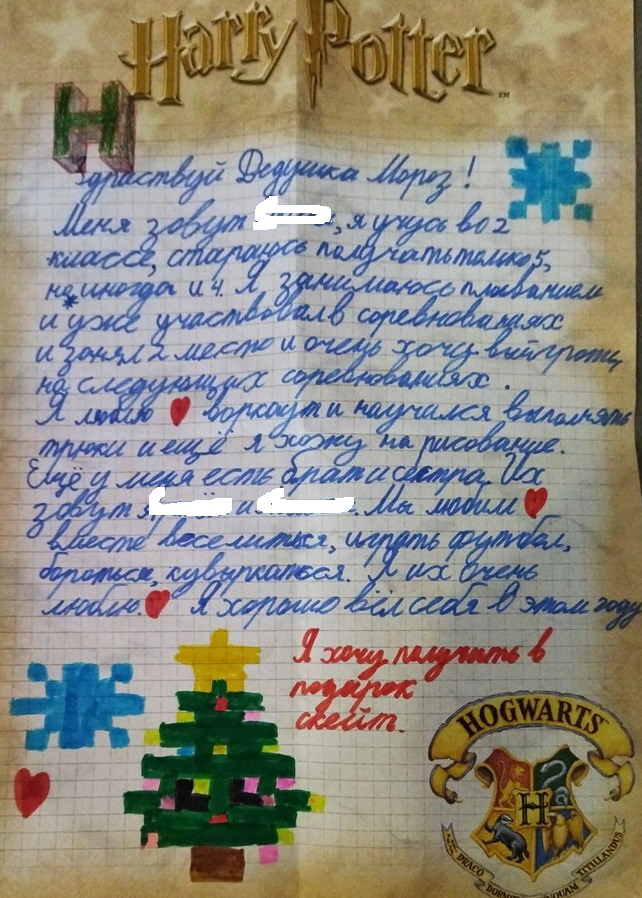 Harry Potter ™
Н
Здраствуй Дедушка Мороз!
Меня зовут , я учусь во 2
классе, стараюсь получать только 5,
но иногда и 4. Я занимаюсь плаванием
и уже участвовал в соревнованиях
и занял 2 место и очень хочу выйграть
на следующих соревнованиях.
Я люблю воркаут и научился выполнять
трюки и ещё я хожу на рисование.
Ещё у меня есть брат и сестра. Их
зовут и . Мы любим
вместе веселиться, играть футбол,
бороться, кувыркаться. Я их очень
люблю. Я хорошо вёл себя в этом году
Я хочу получить в
подарок
скейт.
HOGWARTS
H
DRACO DORMIENS NUNQUAM TITILLANDUS